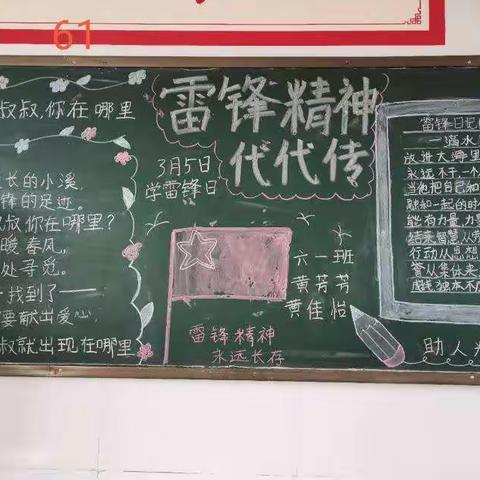 61
叔叔,你在哪里
长的小溪,
锋的足迹。
叔你在哪里?
暖春风,
处寻觅。
找到了——
要献出爱心
叔就出现在哪里
雷锋精神
代代传
3月5日
学雷锋日
六一班
黄芳芳
黄佳怡
雷锋精神
永远长存
雷锋日记
一滴水
放进大海里
永远不干一个
当他把自己和
融和一起的时
能有力量力
结来智慧从劳
行动从思想
誉从集体来
助人为